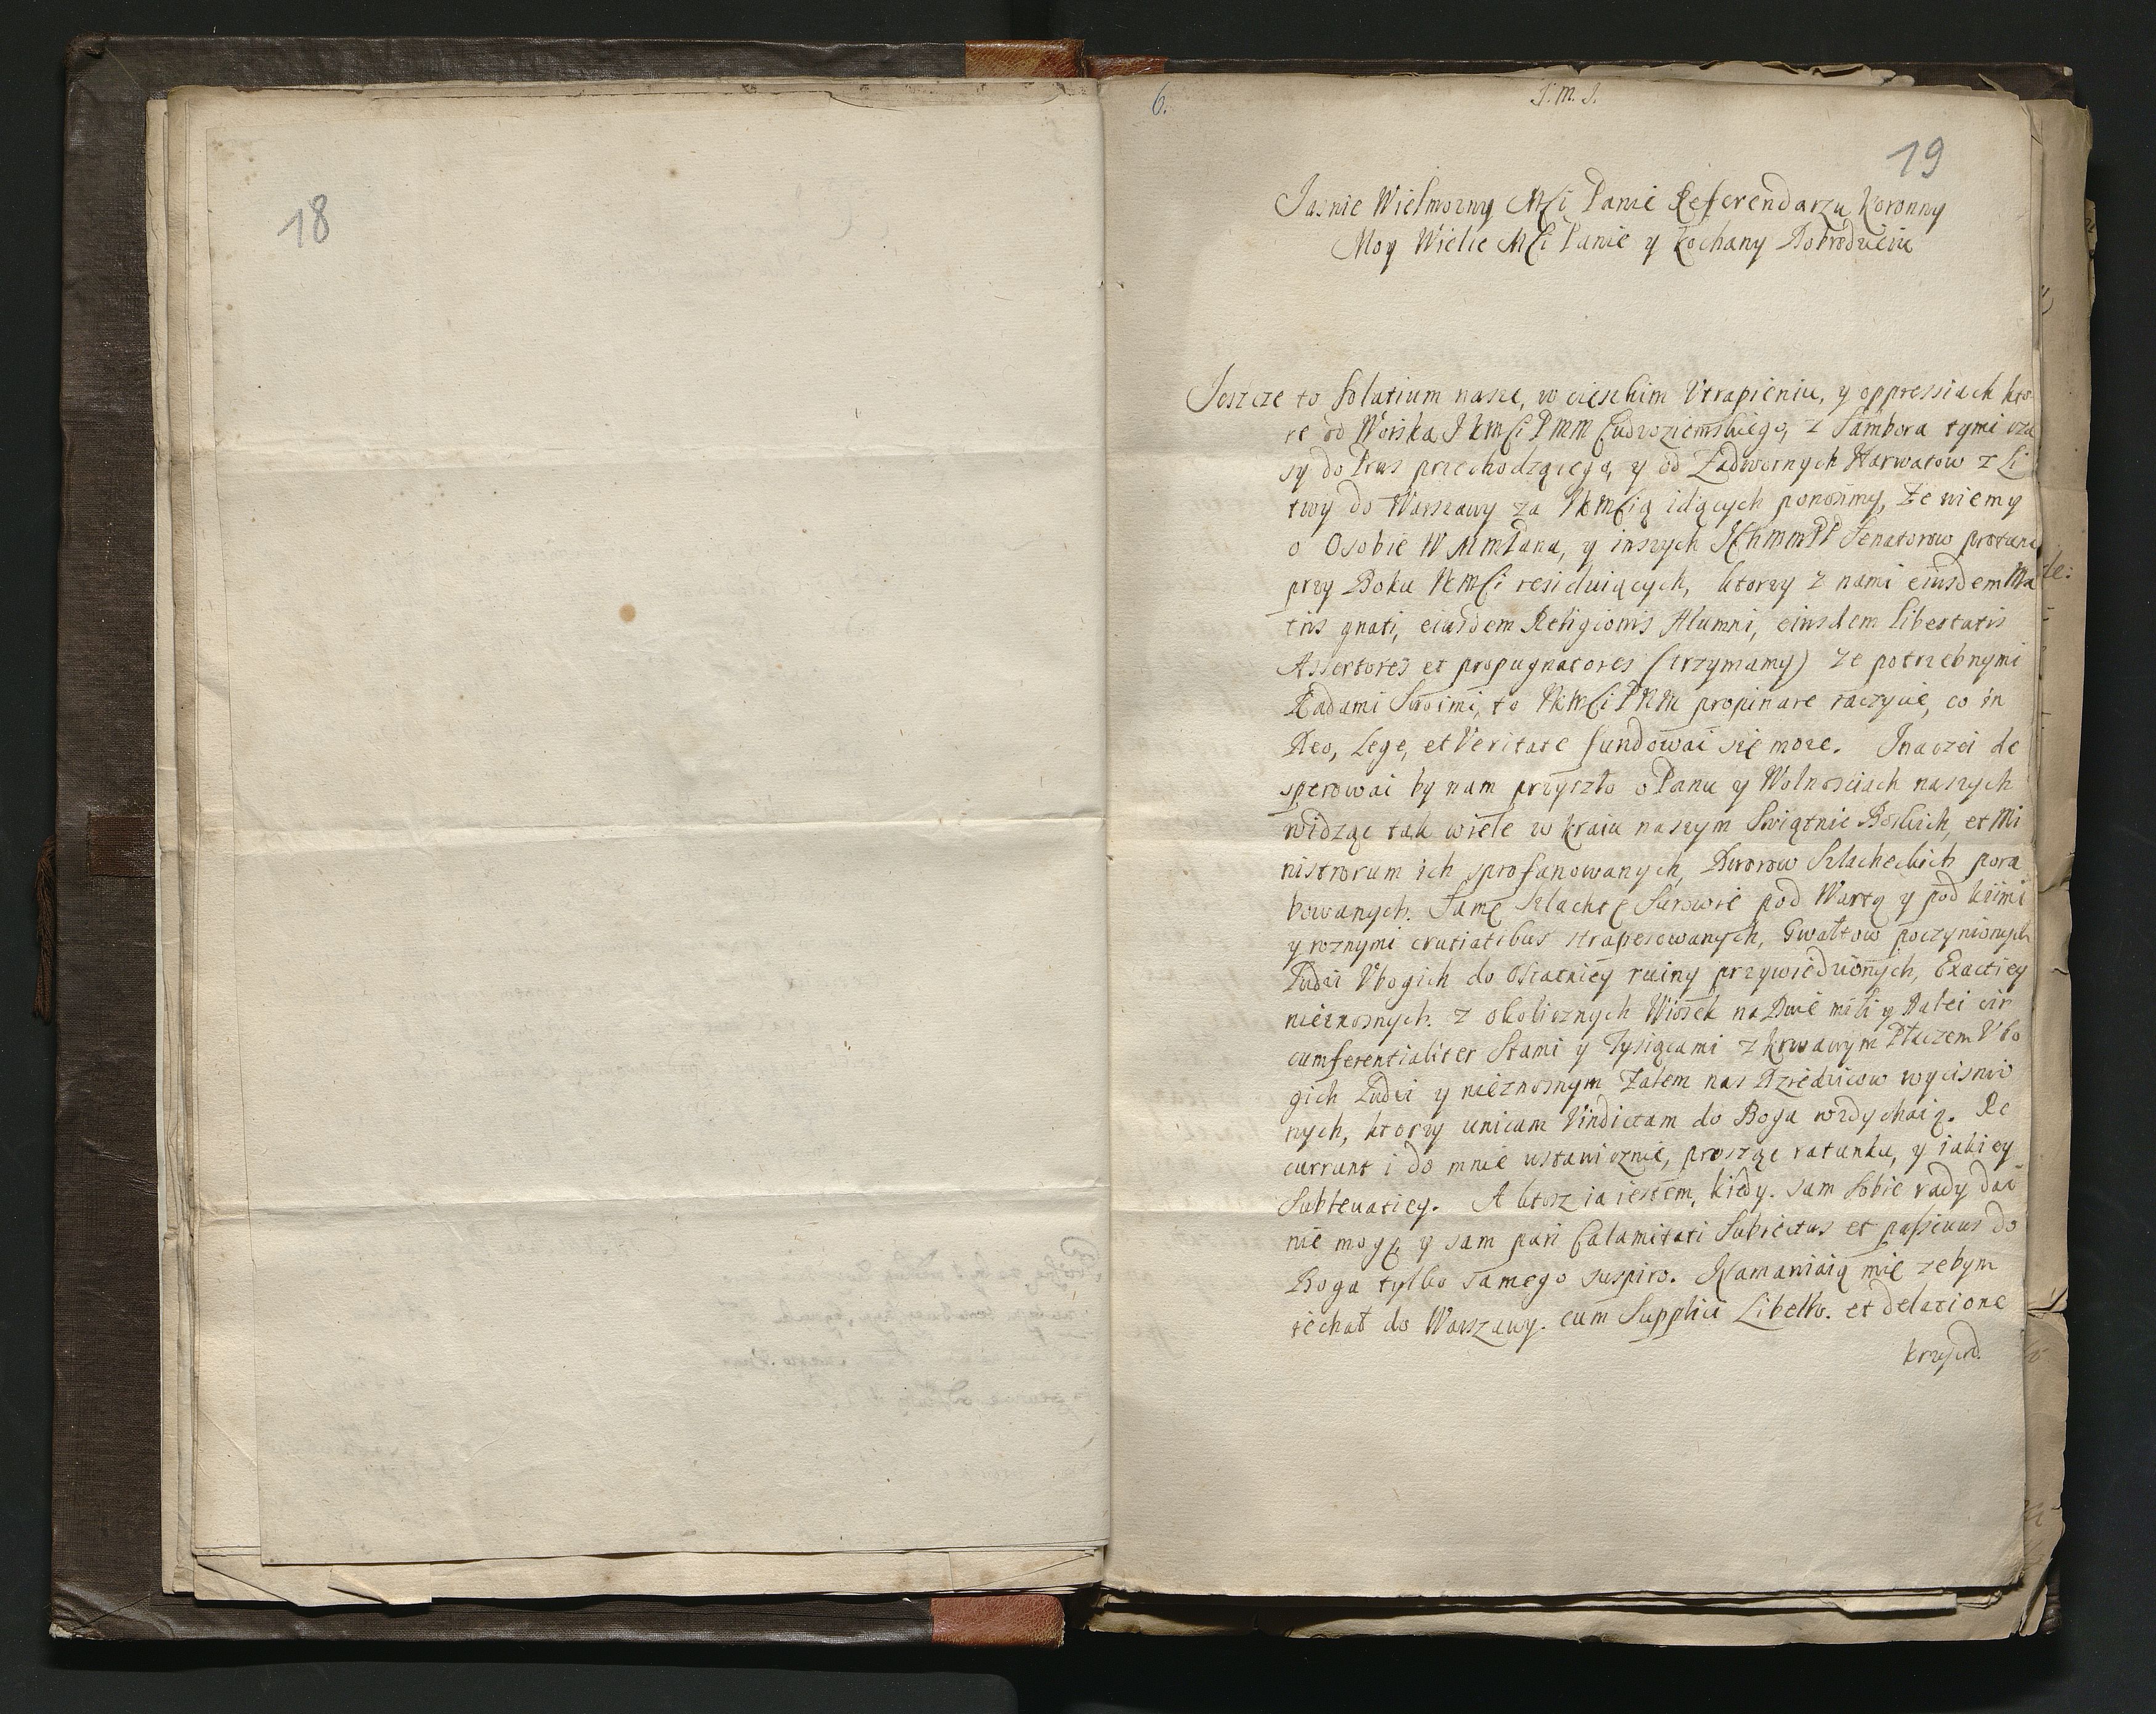 18
6.
J. M. J.
19
Jasnie Wielmozny Mſci Panie Referendarzu Koronny
Moy Wielce Mſci Panie y Kochany Dobrodzieiu
Jeszcze to Solatium nasze, w cieszkim Vtrapieniu, y oppressiach kto
re od Woiska JKMſci PMM Cudzoziemskiego, z Sambora tymi cza
sy do Prus przechodzącego, y od Nadwornych Harwatow z Li
twy do Warszawy za JKMſcią idących ponosimy, Ze wiemy
o Osobie WMMPana, y inszych JchMMPP Senatorow
przy Boku JKMſci residuiących, ktorzy z nami eiusdem Ma
tris gnati, eiusdem Religionis Alumni, eiusdem libertatis
Assertores et propugnatores (trzymamy) ze potrzebnymi
Radami Swoimi, to JKMſci PNM propinare raczycie, co in
Deo, Lege, et Veritate fundowac się moze. Inaczei de
sperowai by nam przyszło o Panu y Wolnosciach naszych
widząc tak wiele w kraiu naszym Swiątnic Boskich, et Mi
nistrorum ich sprofanowanych, Dworow Szlacheckich pora
bowanych. Samę Szlachtę Surowie pod Wartą y pod kiimi
y roznymi crutiatibus strapesowanych, Gwałtow poczynionych
Ludzi Vbogich do ostatniey ruiny przywiedzionych, Exactiey
nieznosnych. z okolicznych Wiosek na Dwie mili y Dalei cir
cumferentialiter Stami y Tysiącami z krwawym Płaczem Vbo
gich Ludzi y nieznosnym Zalem nas Dziedzicow wycisnio
nych, ktorzy unicam Vindictam do Boga wzdychaią. Re
currunt i do mnie ustawicznie, prosząc ratunku, y iakiey
Subleuatiey. A ktosz ia iestem, kiedy. sam sobie rady dac
nie mogę y sam pari Calamitati Subiectus et passiuus do
Boga tylko samego suspiro. Namawiaią mię zebym
iechał do Warszawy. cum Supplici Libello. et delatione
krzywd.